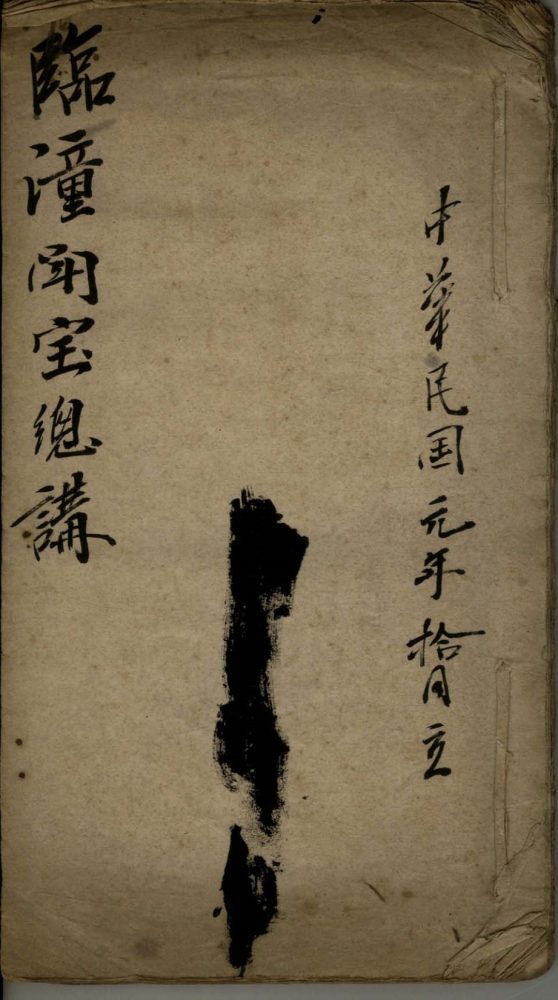 中華民国元年拾月立
臨潼閗宝緫講